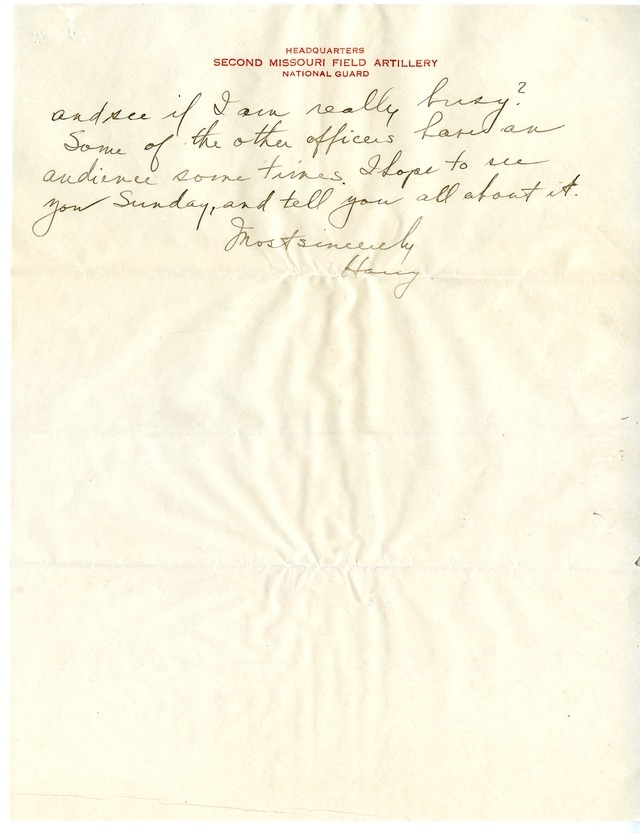 HEADQUARTERS
SECOND MISSOURI FIELD ARTILLERY
NATIONAL GUARD
and see if I am really busy?
Some of the other officers have an
audience some times. I hope to see
you Sunday, and tell you all about it.
Most sincerely
Harry